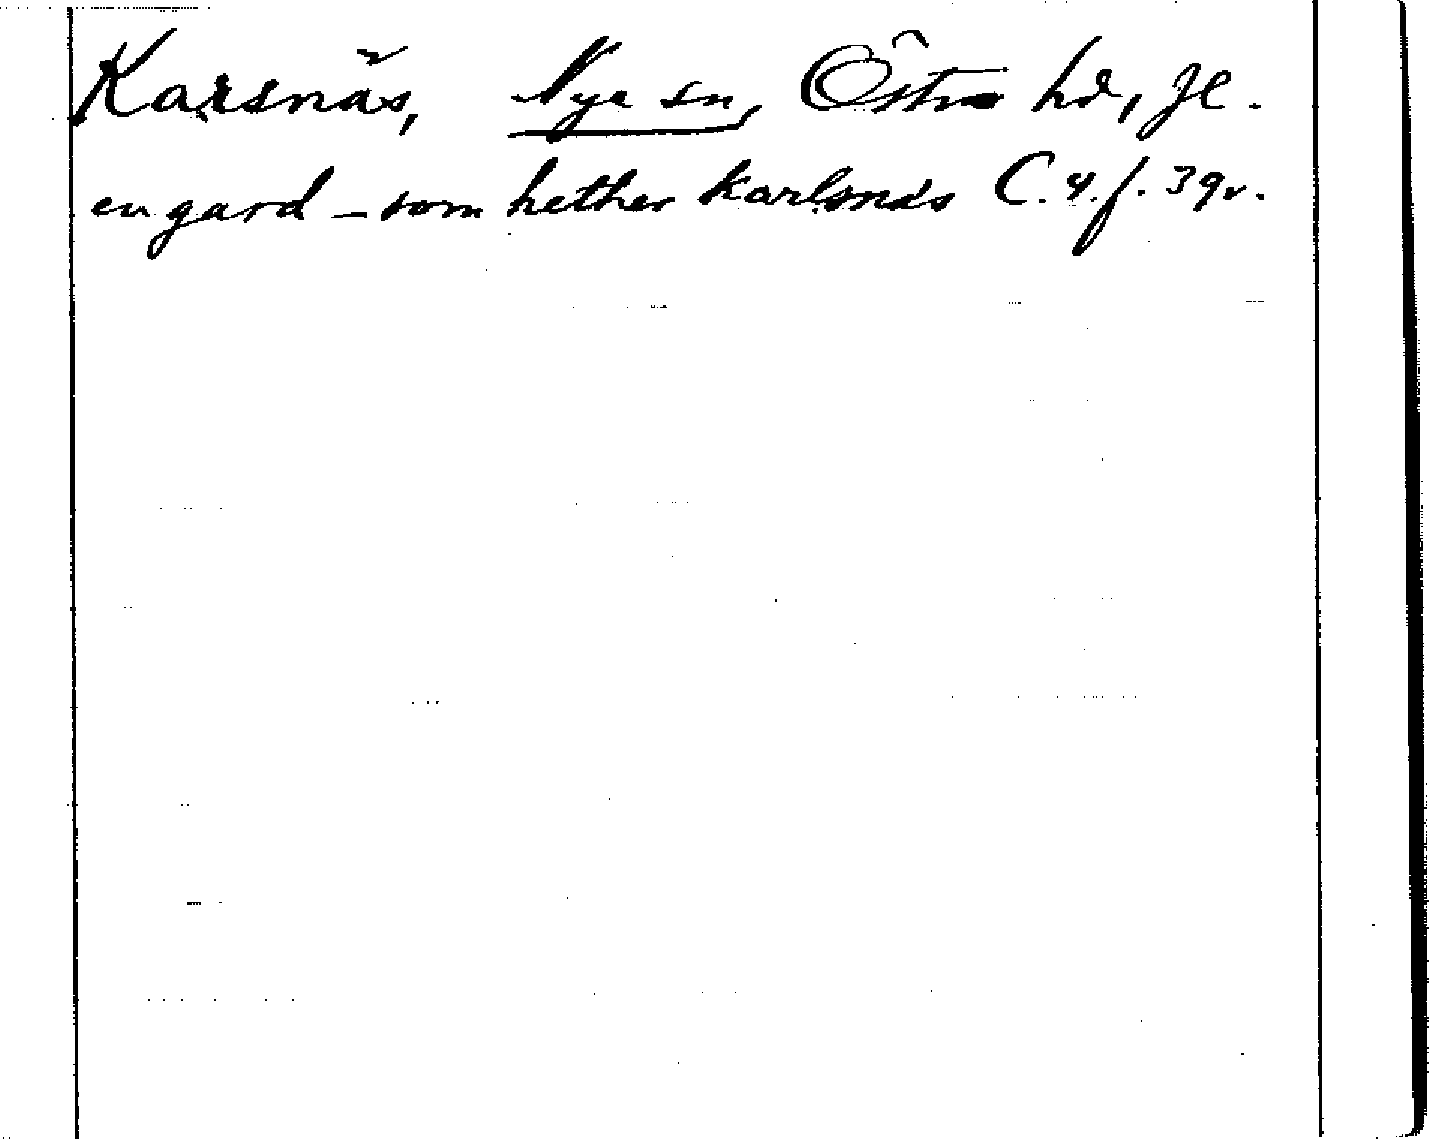 Karsnäs, Nye sn, Östra hd, Jl.
en gard – som hether karlsnäs C. 4. f. 39v.